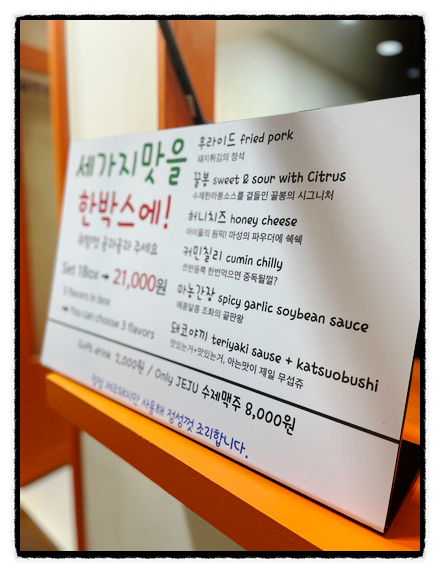 세가지맛을
한박스에!
취향껏 골라골라 주세요
Set 1Box → 21,000원
3 flavors in box
→ You can choose 3 flavors
후라이드 fried pork
돼지튀김의 정석
꿀봉 sweet & sour with Citrus
수제한라봉소스를 곁들인 꿀봉의 시그니처
허니치즈 honey cheese
아이들의 원픽! 마성의 파우더에 쉑쉑
커민칠리 cumin chilly
쯔란듬뿍 한번먹으면 중독될껄?
마농간장 spicy garlic soybean sauce
매콤달콤 조화의 끝판왕
돼코야끼 teriyaki sause + katsuobushi
맛있는거+맛있는거, 아는맛이 제일 무섭쥬
Soft drink 2,000원 / Only JEJU 수제맥주 8,000원
제주돼지만 사용해 정성껏 조리합니다.